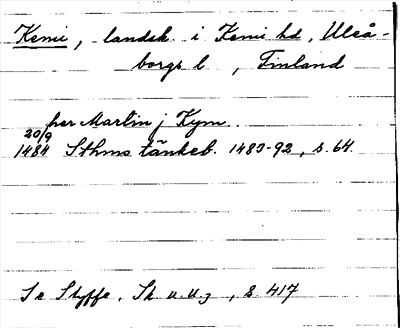 Kemi, landsk. i Kemi hd, Uleå-
borgs l, Finland
her Martin j Kym.
20/9
1484 Sthms tänkeb. 1483-92, s. 64.
Se Styffe, Sk. u. U. 3, s. 417